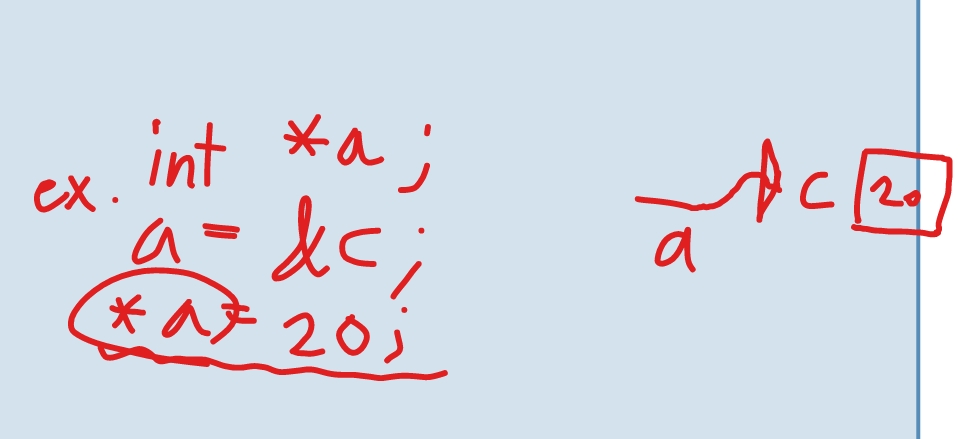 ex. int *a;
a = &c;
*a = 20;
a
c 20